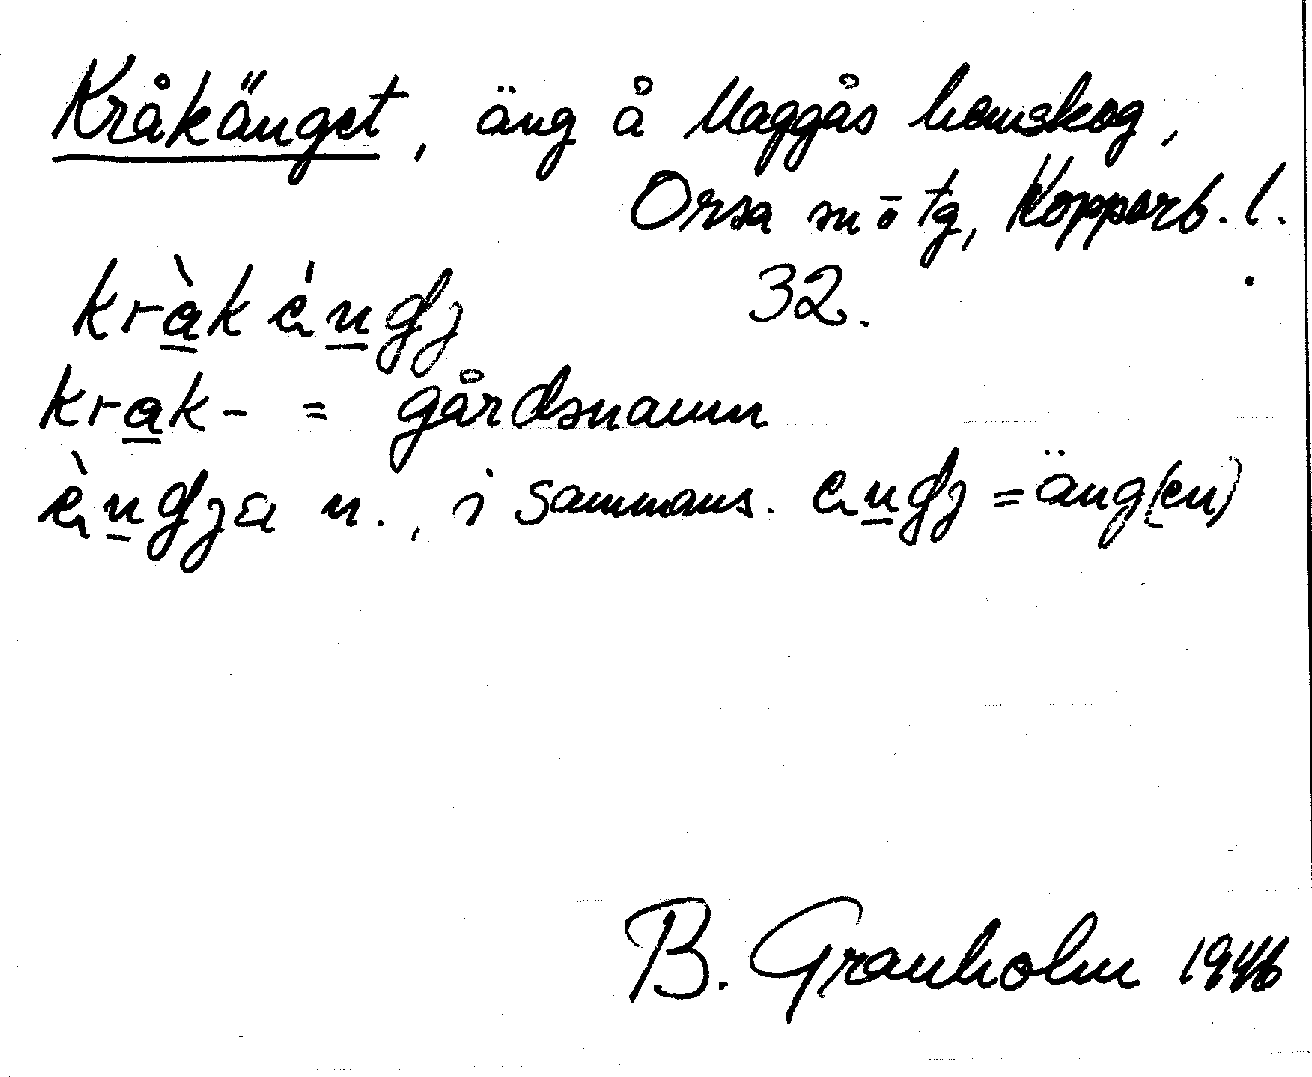 Kråkänget, äng å Maggås hemskog,
Orsa sn o tg, Kopparb. l.
kràkéngj 32.
krak- = gårdsnamn
èngja n., i sammans. engj = äng(en)
B. Granholm 1946